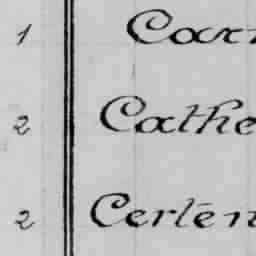 1 Cart
2 Cathe
2 Certen